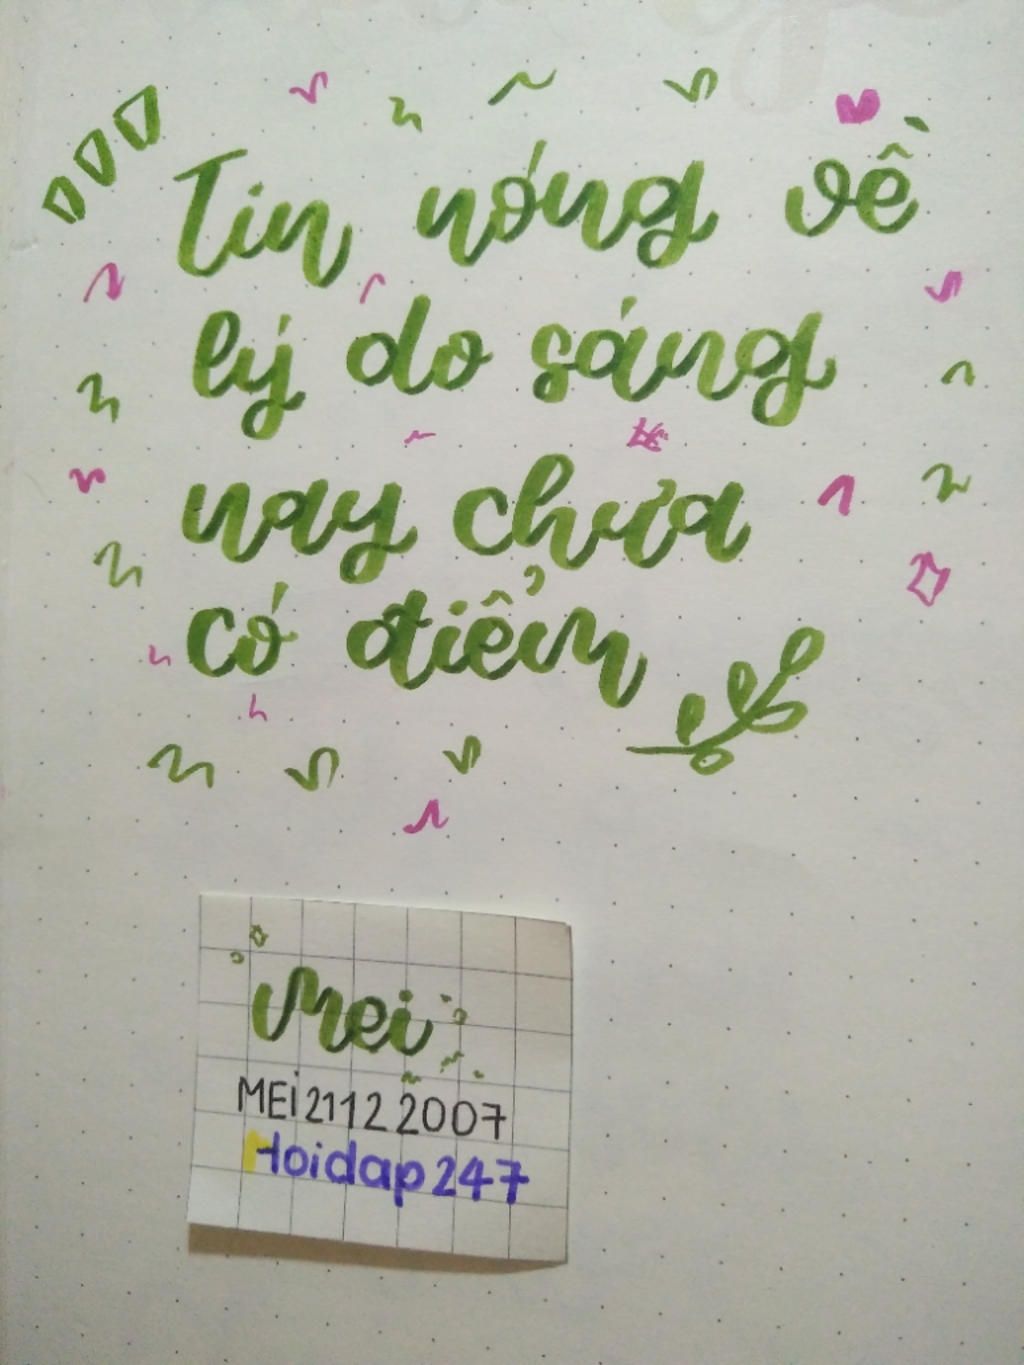 Tin nóng về
lý do sáng
nay chưa
có điểm
Mei
MEi21122007
Hoidap247